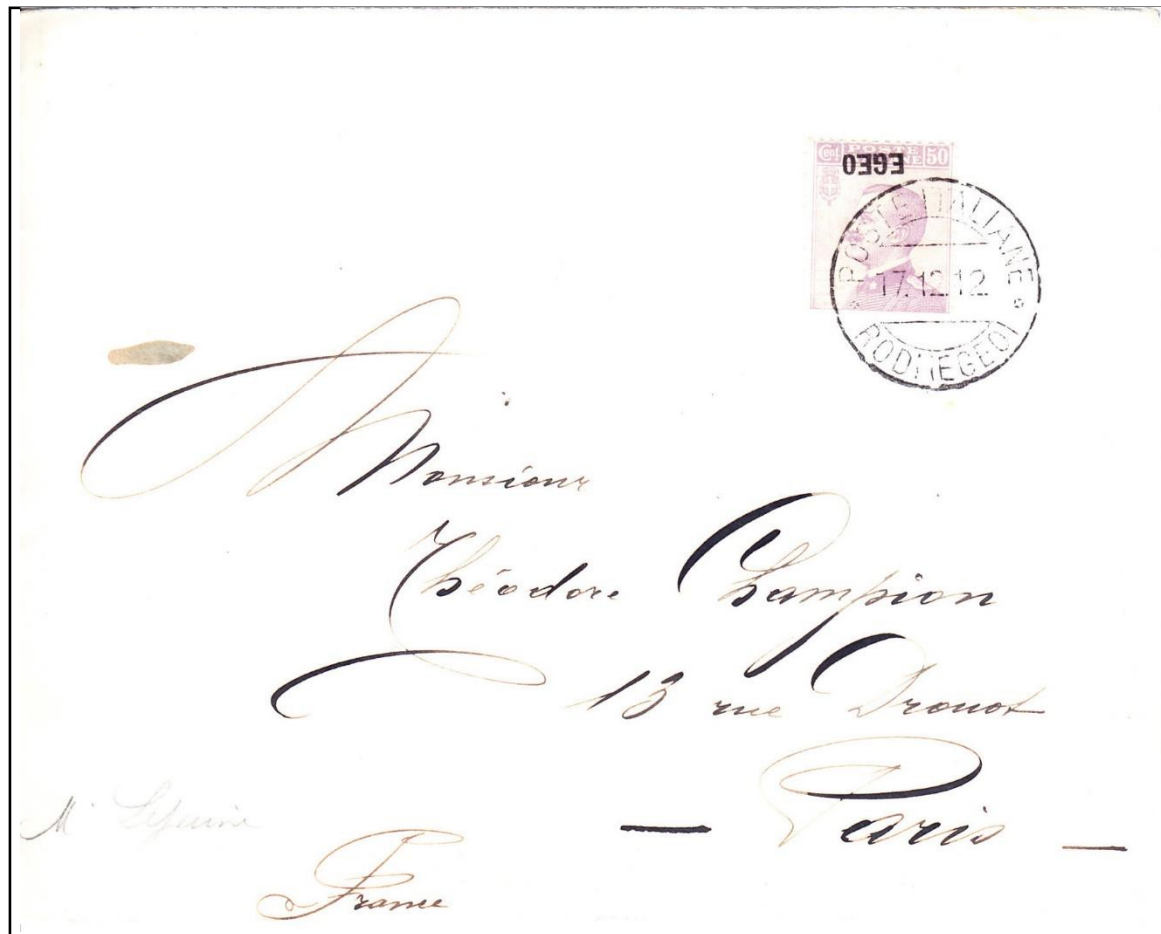 Cent 50
POSTE
EGEO
POSTE ITALIANE
17.12.12
RODI (EGEO)
Monsieur
Théodore Champion
13 rue Drouot
— Paris —
M
France